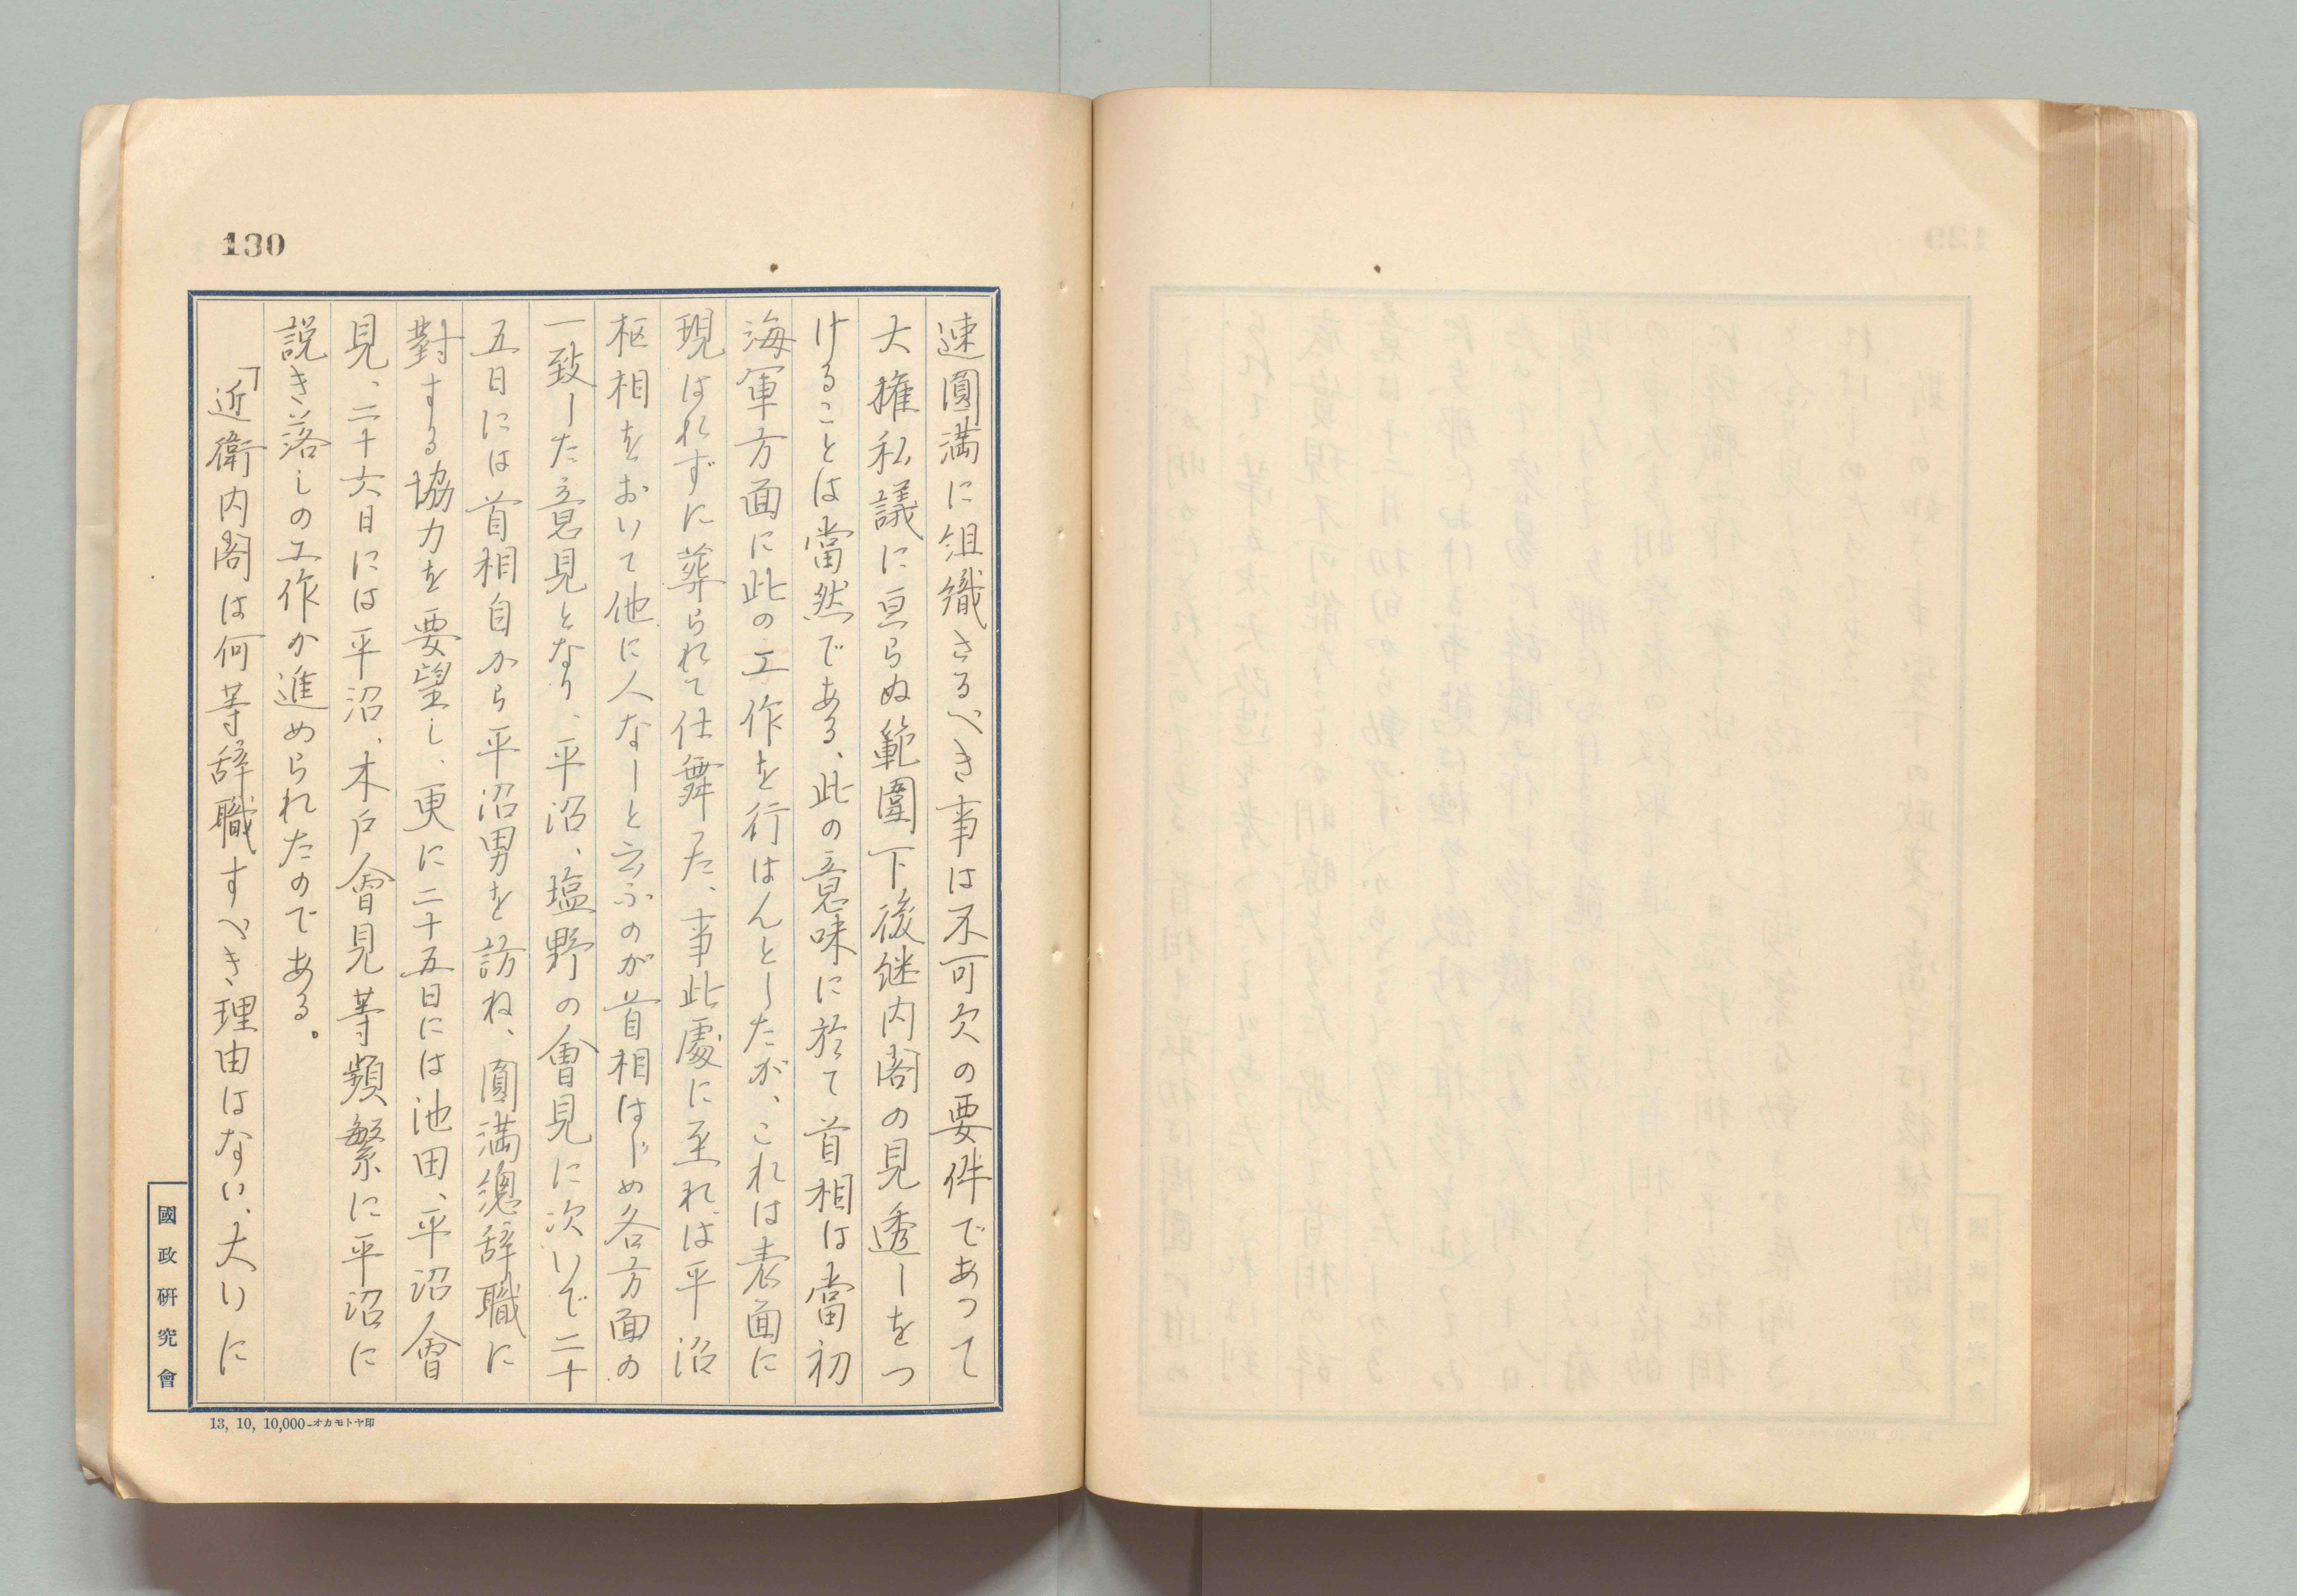 130
速圓満に組織さるべき事は不可欠の要件であつて
大権私議に亘らぬ範圍下後継内閣の見透しをつ
けることは當然である、此の意味に於て首相は當初
海軍方面に此の工作を行はんとしたが、これは表面に
現はれずに葬られて仕舞た、事此處に至れば平沼
枢相をおいて他に人なしと云ふのが首相はじめ各方面の
一致した意見となり、平沼、塩野の會見に次いで二十
五日には首相自から平沼男を訪ね、圓満總辞職に
對する協力を要望し、更に二十五日には池田、平沼會
見、二十六日には平沼、木戸會見等頻繁に平沼に
説き落しの工作か進められたのである。
「近衛内閣は何等辞職すべき理由はない、大いに
國政研究會
13, 10, 10,000—オカモトヤ印